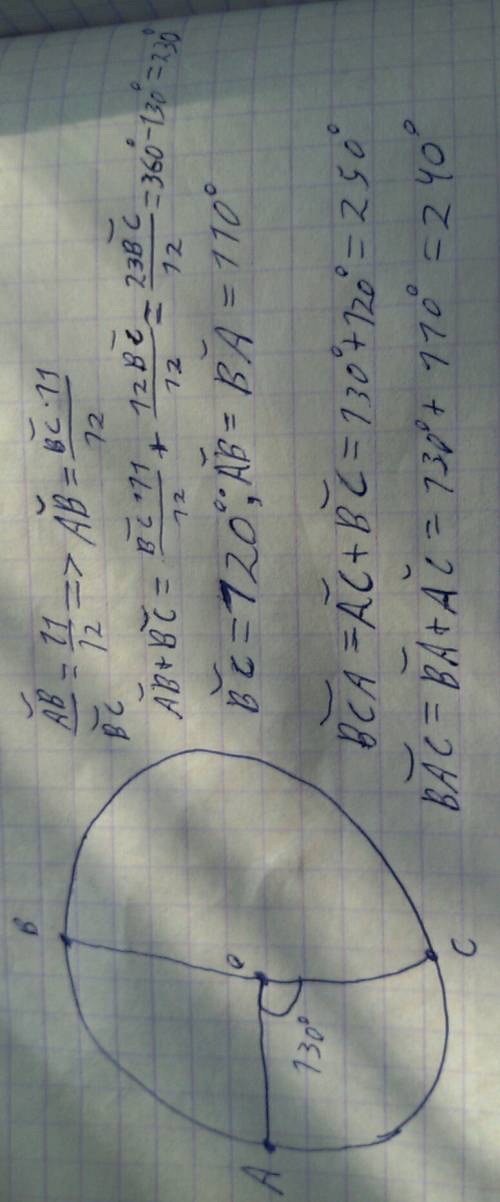 B
A
O
C
130°
A͝B/B͝C = 11/12 => A͝B = B͝C·11/12
A͝B+B͝C = B͝C·11/12 + 12B͝C/12 = 23B͝C/12 = 360°-130° = 230°
B͝C = 120°; A͝B = B͝A = 110°
B͝CA = A͝C+B͝C = 130°+120° = 250°
B͝AC = B͝A+A͝C = 130°+110° = 240°